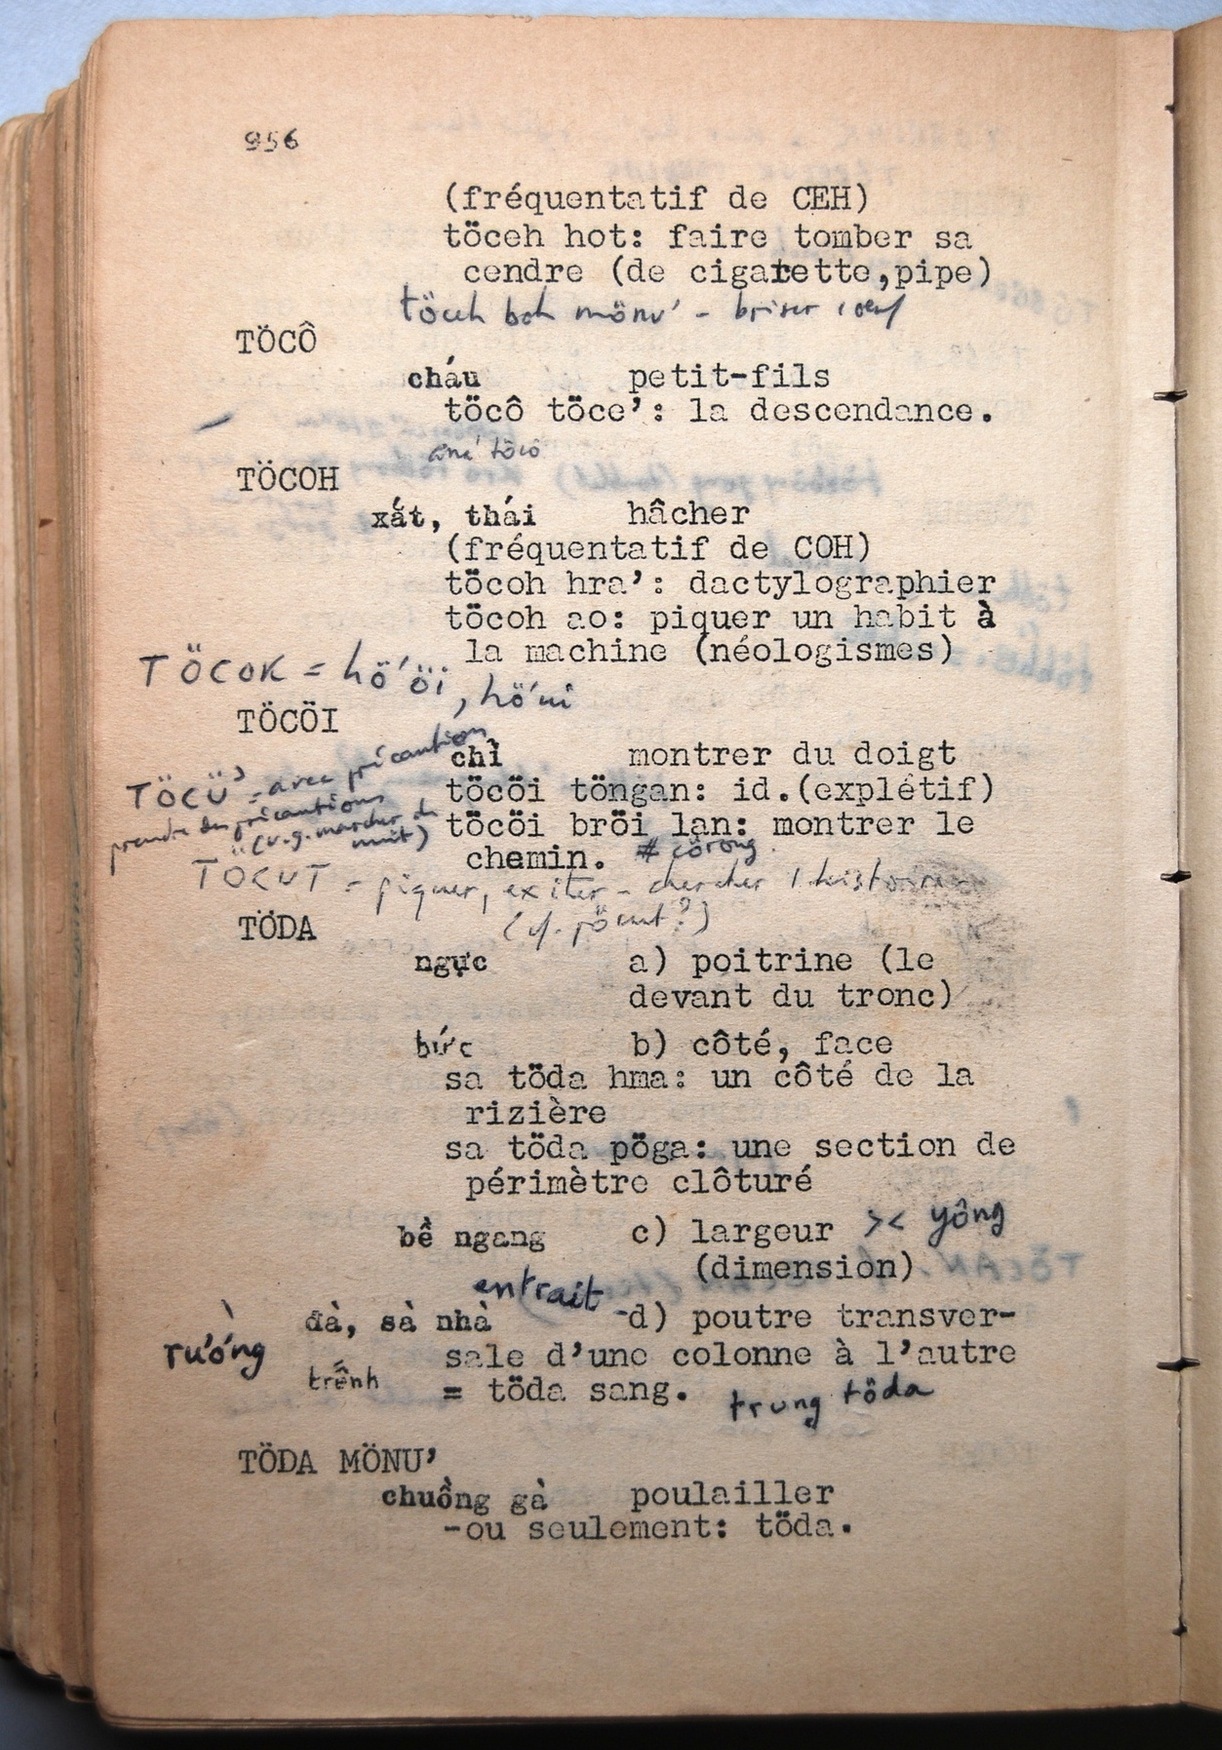 956
(fréquentatif de CEH)
töceh hot: faire tomber sa
cendre (de cigarette,pipe)
töceh boh mönu' - briser 1 oeuf
TÖCÔ
cháu petit-fils
töcô töce': la descendance.
ana' töcô
TÖCOH
xắt, thái hâcher
(fréquentatif de COH)
töcoh hra': dactylographier
töcoh ao: piquer un habit à
la machine (néologismes)
TÖCOK = hö'öi, hö'ui
TÖCÖI
chỉ montrer du doigt
töcöi töngan: id.(explétif)
töcöi bröi lan: montrer le
chemin. # cörong
TÖCÜ' = avec précaution
prendre des précautions
(v.g. marcher de
nuit)
TÖCUT = piquer, exciter - chercher 1 histoire
(cf. pöcut?)
TÖDA
ngực a) poitrine (le
devant du tronc)
bức b) côté, face
sa töda hma: un côté de la
rizière
sa töda pöga: une section de
périmètre clôturé
bề ngang c) largeur >< yông
(dimension)
entrait
đà, sà nhà -d) poutre transver-
rường
sale d'une colonne à l'autre
trễnh = töda sang. trung töda
TÖDA MÖNU'
chuồng gà poulailler
-ou seulement: töda.